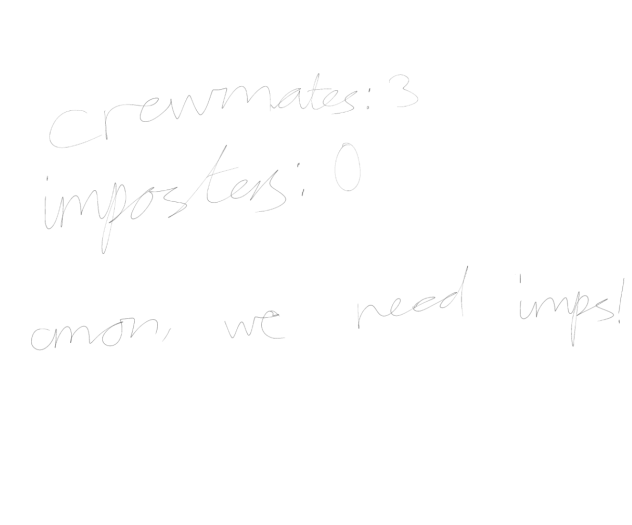 crewmates: 3
imposters: 0
cmon, we need imps!